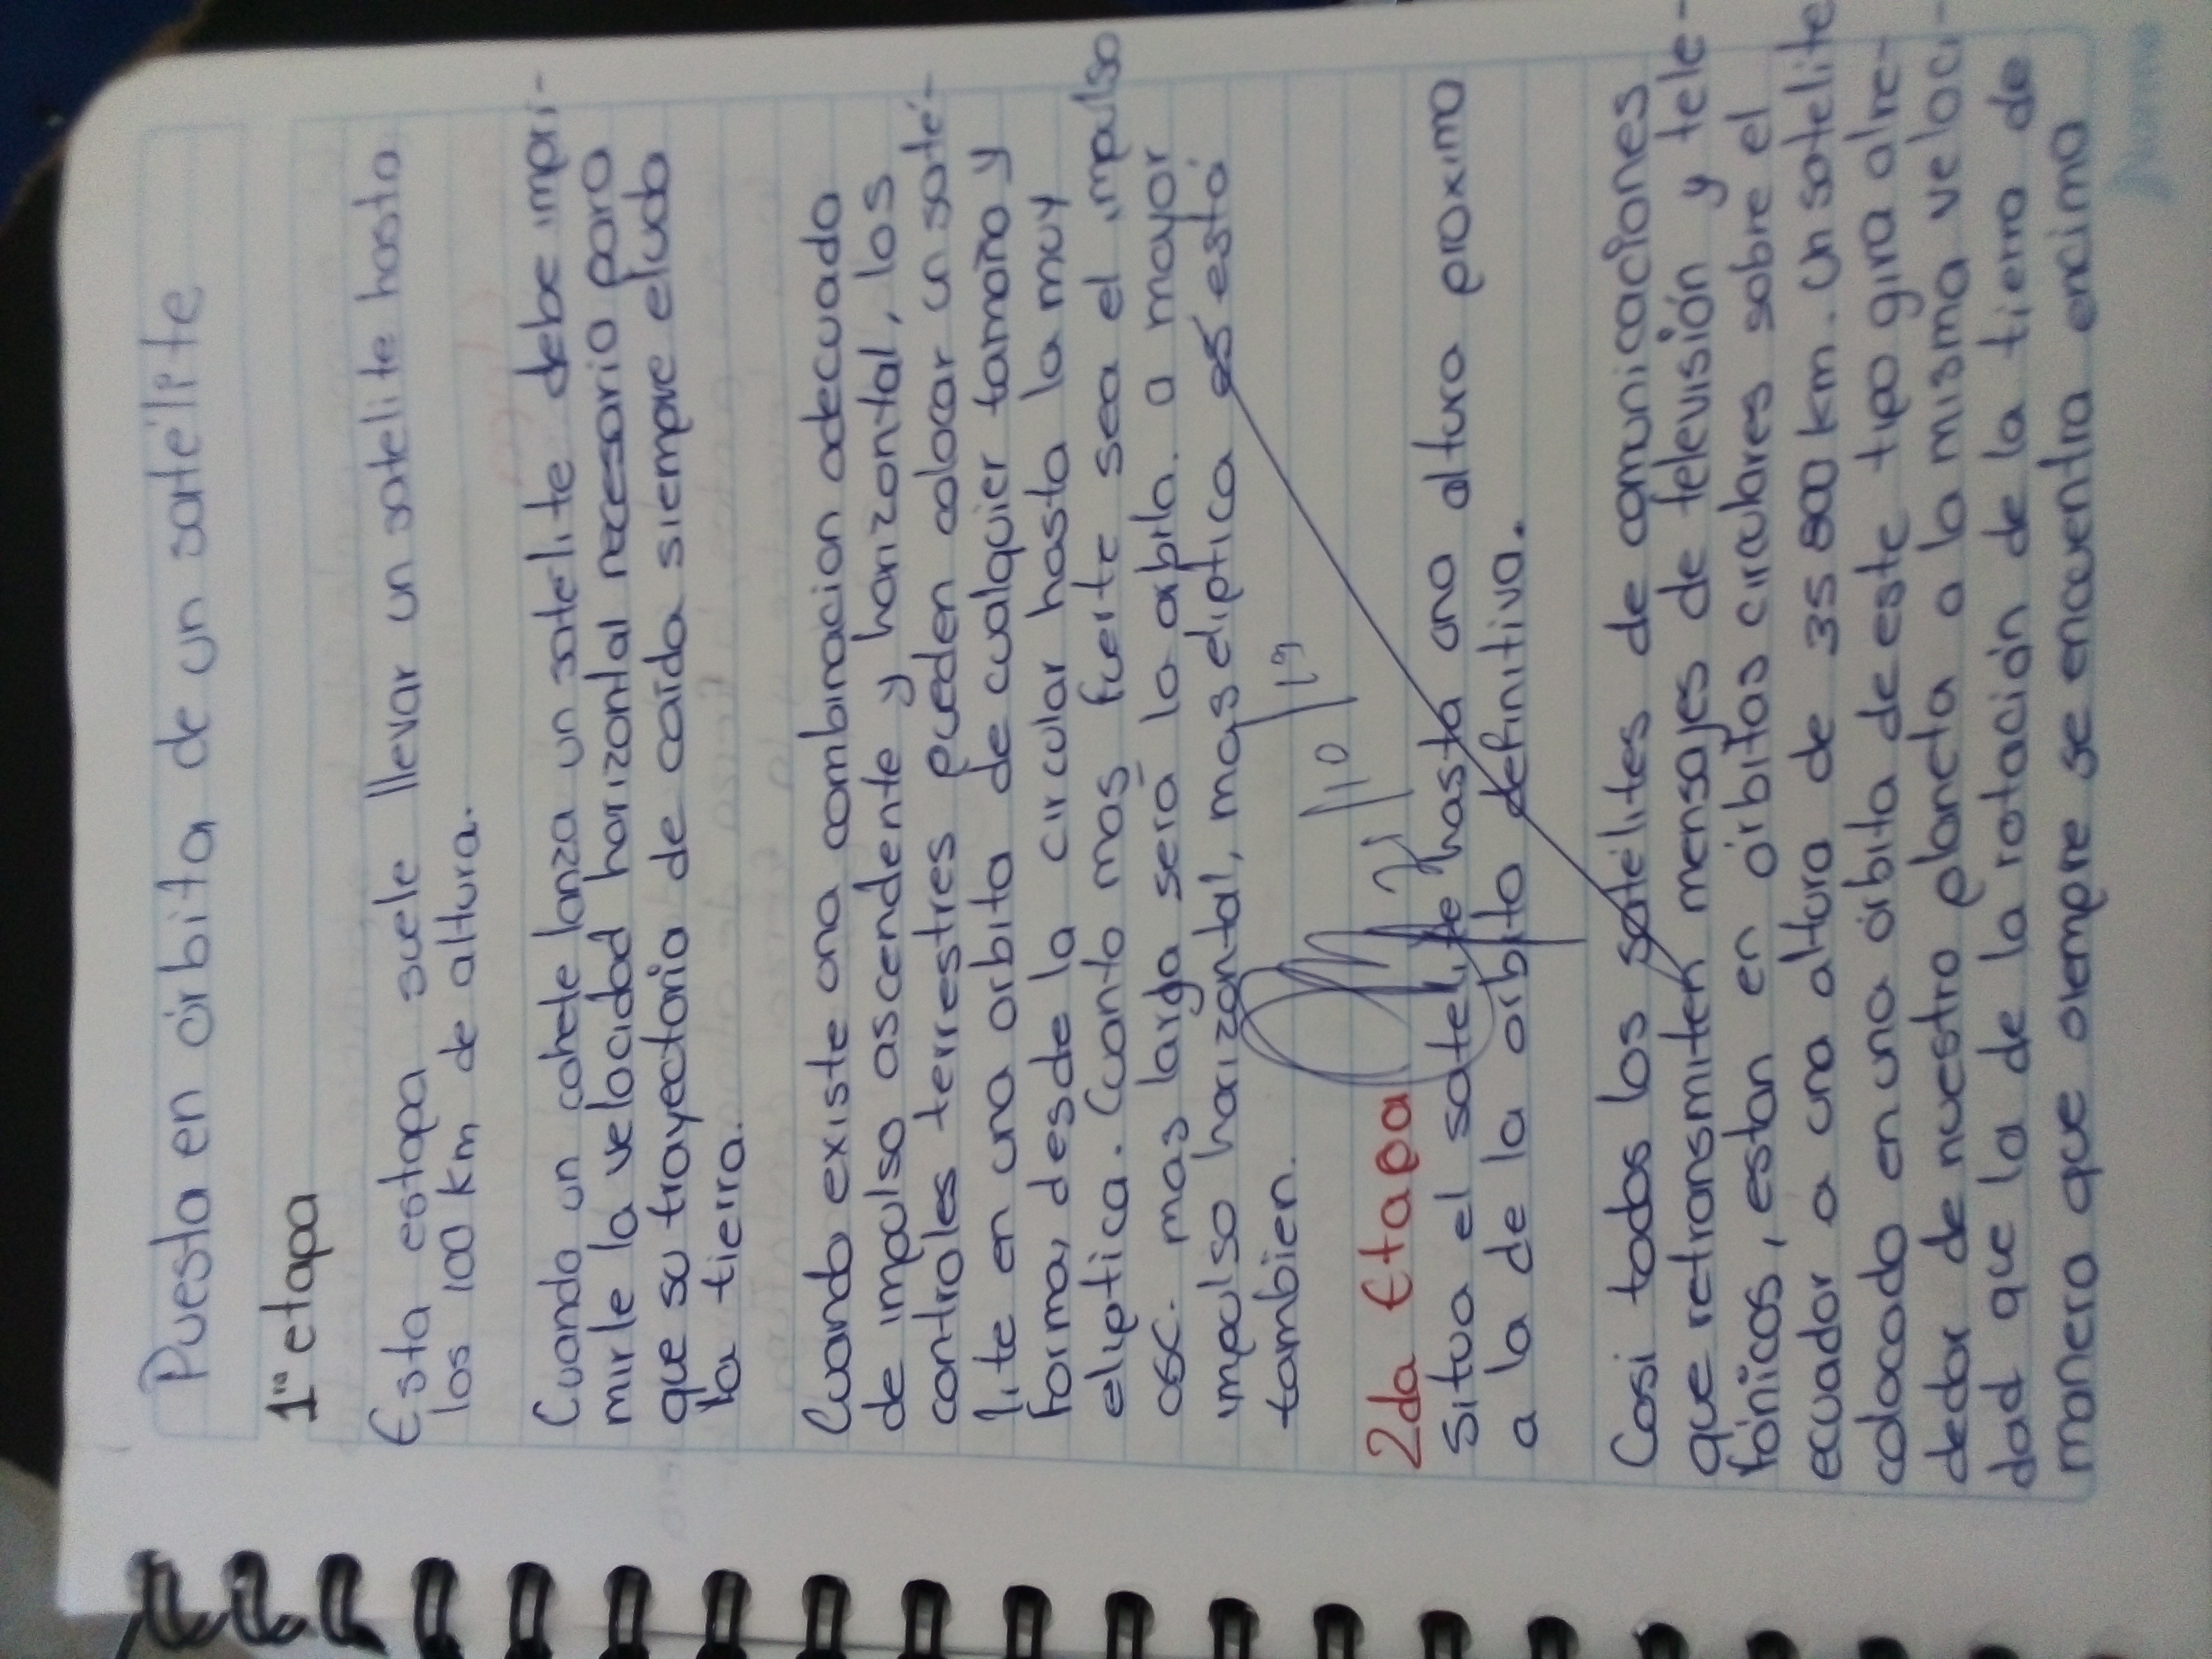 Puesta en órbita, de un satélite
1ra etapa
Esta estapa suele llevar un satelite hasta
los 100 km de altura.
Cuando un cohete lanza un satelite debe impri-
mirle la velocidad horizontal necesario para
que su trayectoria de caída siempre eluda
la tierra.
Cuando existe una combinacion adecuada
de impulso ascendente y horizontal, los
controles terrestres pueden colocar un saté-
lite en una orbita de cualquier tamaño y
forma, desde la circular hasta la muy
eliptica. Cuanto mas fuerte sea el impulso
asc. mas larga será la orbita. a mayor
impulso horizontal, mas eliptica es está
tambien.
21/10/19
2da Etapa
Situa el satelite hasta una altura proximo
a la de la orbita definitiva.
Casi todos los satélites de comunicaciones
que retransmiten mensajes de televisión y tele-
fónicos, estan en órbitas circulares sobre el
ecuador a una altura de 35 800 km. Un satelite
colocado en una órbita de este tipo gira alre-
dedor de nuestro planeta a la misma veloci-
dad que la de la rotación de la tierra de
manera que siempre se encuentra encima